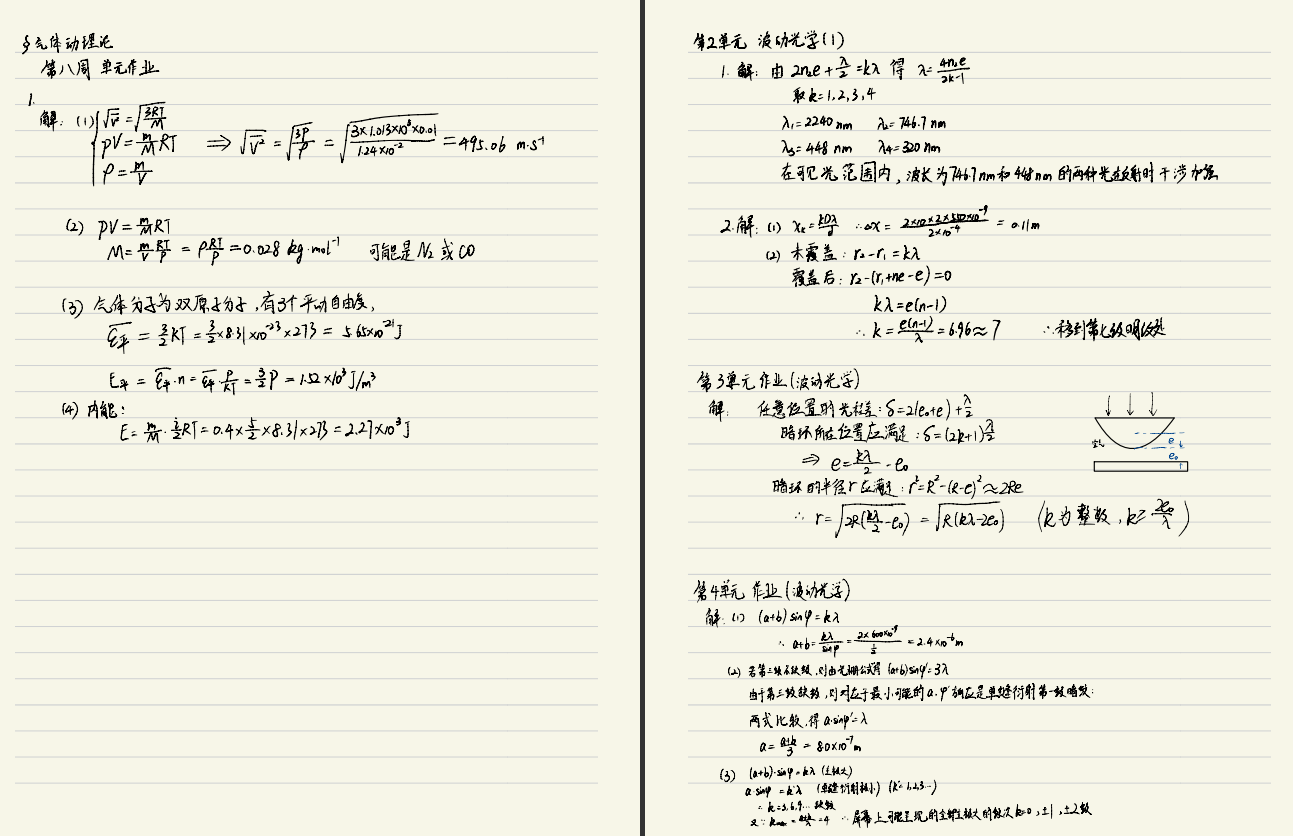 §气体动理论
第八周 单元作业
1.
解: (1) √v̄² = √(3RT/M)
pV = m/M RT ⟹ √v̄² = √(3P/ρ) = √(3×1.013×10⁵×0.01/1.24×10⁻²) = 495.06 m·s⁻¹
ρ = m/V
(2) PV = m/M RT
M = m/V RT/P = ρ RT/P = 0.028 kg·mol⁻¹ 可能是 N₂ 或 CO
(3) 气体分子为双原子分子, 有3个平动自由度,
ε平 = 3/2 kT = 3/2 × 8.31×10⁻²³×273 = 5.65×10⁻²¹ J
E平 = ε平·n = ε平· P/kT = 3/2 P = 1.52×10³ J/m³
(4) 内能:
E = m/M · i/2 RT = 0.4× 5/2 ×8.31×273 = 2.27×10³ J
第2单元 波动光学(1)
1. 解: 由 2n₂e + λ/2 = kλ 得 λ = 4n₂e/2k-1
取 k=1,2,3,4
λ₁=2240 nm λ₂=746.7 nm
λ₃=448 nm λ₄=320 nm
在可见光范围内, 波长为746.7nm和448nm的两种光在反射时干涉加强
2. 解: (1) xₖ = kDλ/d ∴ Δx = 2×10×2×550×10⁻⁹/2×10⁻⁴ = 0.11m
(2) 未覆盖: r₂-r₁=kλ
覆盖后: r₂-(r₁+ne-e)=0
kλ=e(n-1)
∴ k = e(n-1)/λ = 6.96≈7 ∴移到第七级明纹处
第3单元作业(波动光学)
解: 任意位置的光程差: δ=2(e₀+e)+λ/2
暗环所在位置应满足: δ=(2k+1)λ/2
⟹ e = kλ/2 - e₀
空气
e
e₀
暗环的半径r应满足: r²=R²-(R-e)²≈2Re
∴ r = √(2R(kλ/2 - e₀)) = √(R(kλ-2e₀)) (k为整数, k≥ 2e₀/λ)
第4单元 作业(波动光学)
解: (1) (a+b) sinφ = kλ
∴ a+b = kλ/sinφ = 2×600×10⁻⁹/½ = 2.4×10⁻⁶ m
(2) 若第三级不缺级, 则由光栅公式得 (a+b)sinφ'=3λ
由于第三级缺级, 则对应于最小可能的a, φ'方向应是单缝衍射第一级暗纹:
两式比较, 得 a·sinφ'=λ
a = a+b/3 = 8.0×10⁻⁷ m
(3) (a+b)·sinφ = kλ (主极大)
a·sinφ = k'λ (单缝衍射极小) (k'=1,2,3…)
= k=3,6,9… 缺级
又∵ kmax = a+b/λ =4 ∴屏幕上可能呈现的全部主极大的级次 k=0, ±1, ±2级